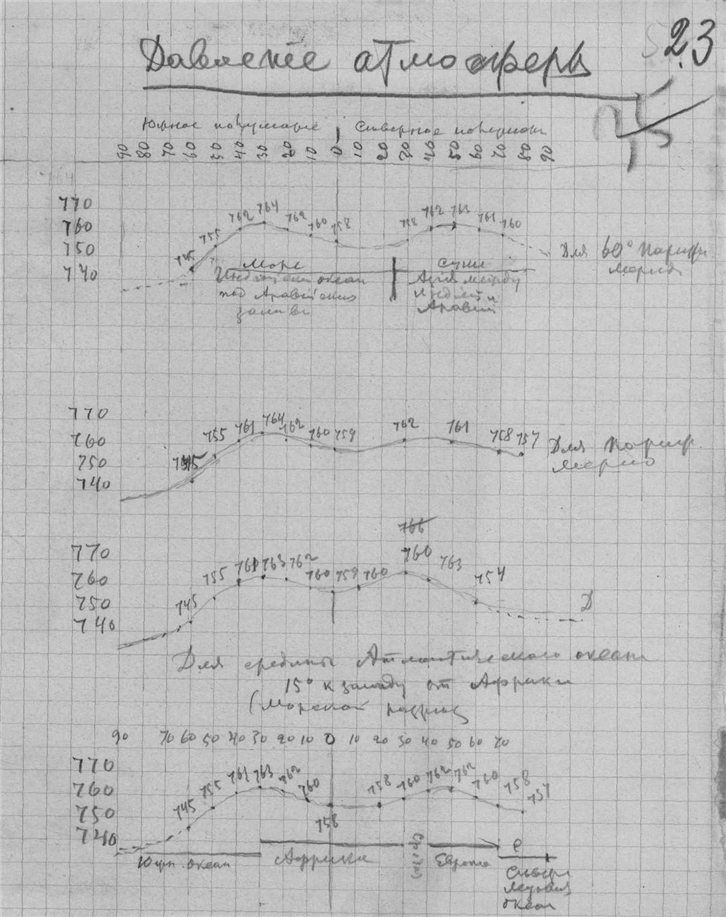 23
Давленіе атмосферы
35
Южное полушаріе Сѣверное полушаріе
90 80 70 60 50 40 30 20 10 0 10 20 30 40 50 60 70 80 90
770
760
750
740
745 755 762 764 762 760 758 758 762 763 761 760
Для 60° Париж
мерид
Море Суша
Индѣйскій океан Азія между
под Аравійским Индией и
залив Аравіей
770
760
750
740
745 755 761 764 762 760 759 762 761 758 757
Для Париж
мерид
766
770
760
750
740
745 755 761 763 762 760 759 760 766 763 754
Для средины Атлантическаго океана
15° к западу от Африки
(Морской разрѣз
90 70 60 50 40 30 20 10 0 10 20 30 40 50 60 70
770
760
750
740
745 755 761 763 762 760 758 758 760 762 762 760 758 757
Южн. океан Африка Европа
Сѣверн
Ледовит
океан